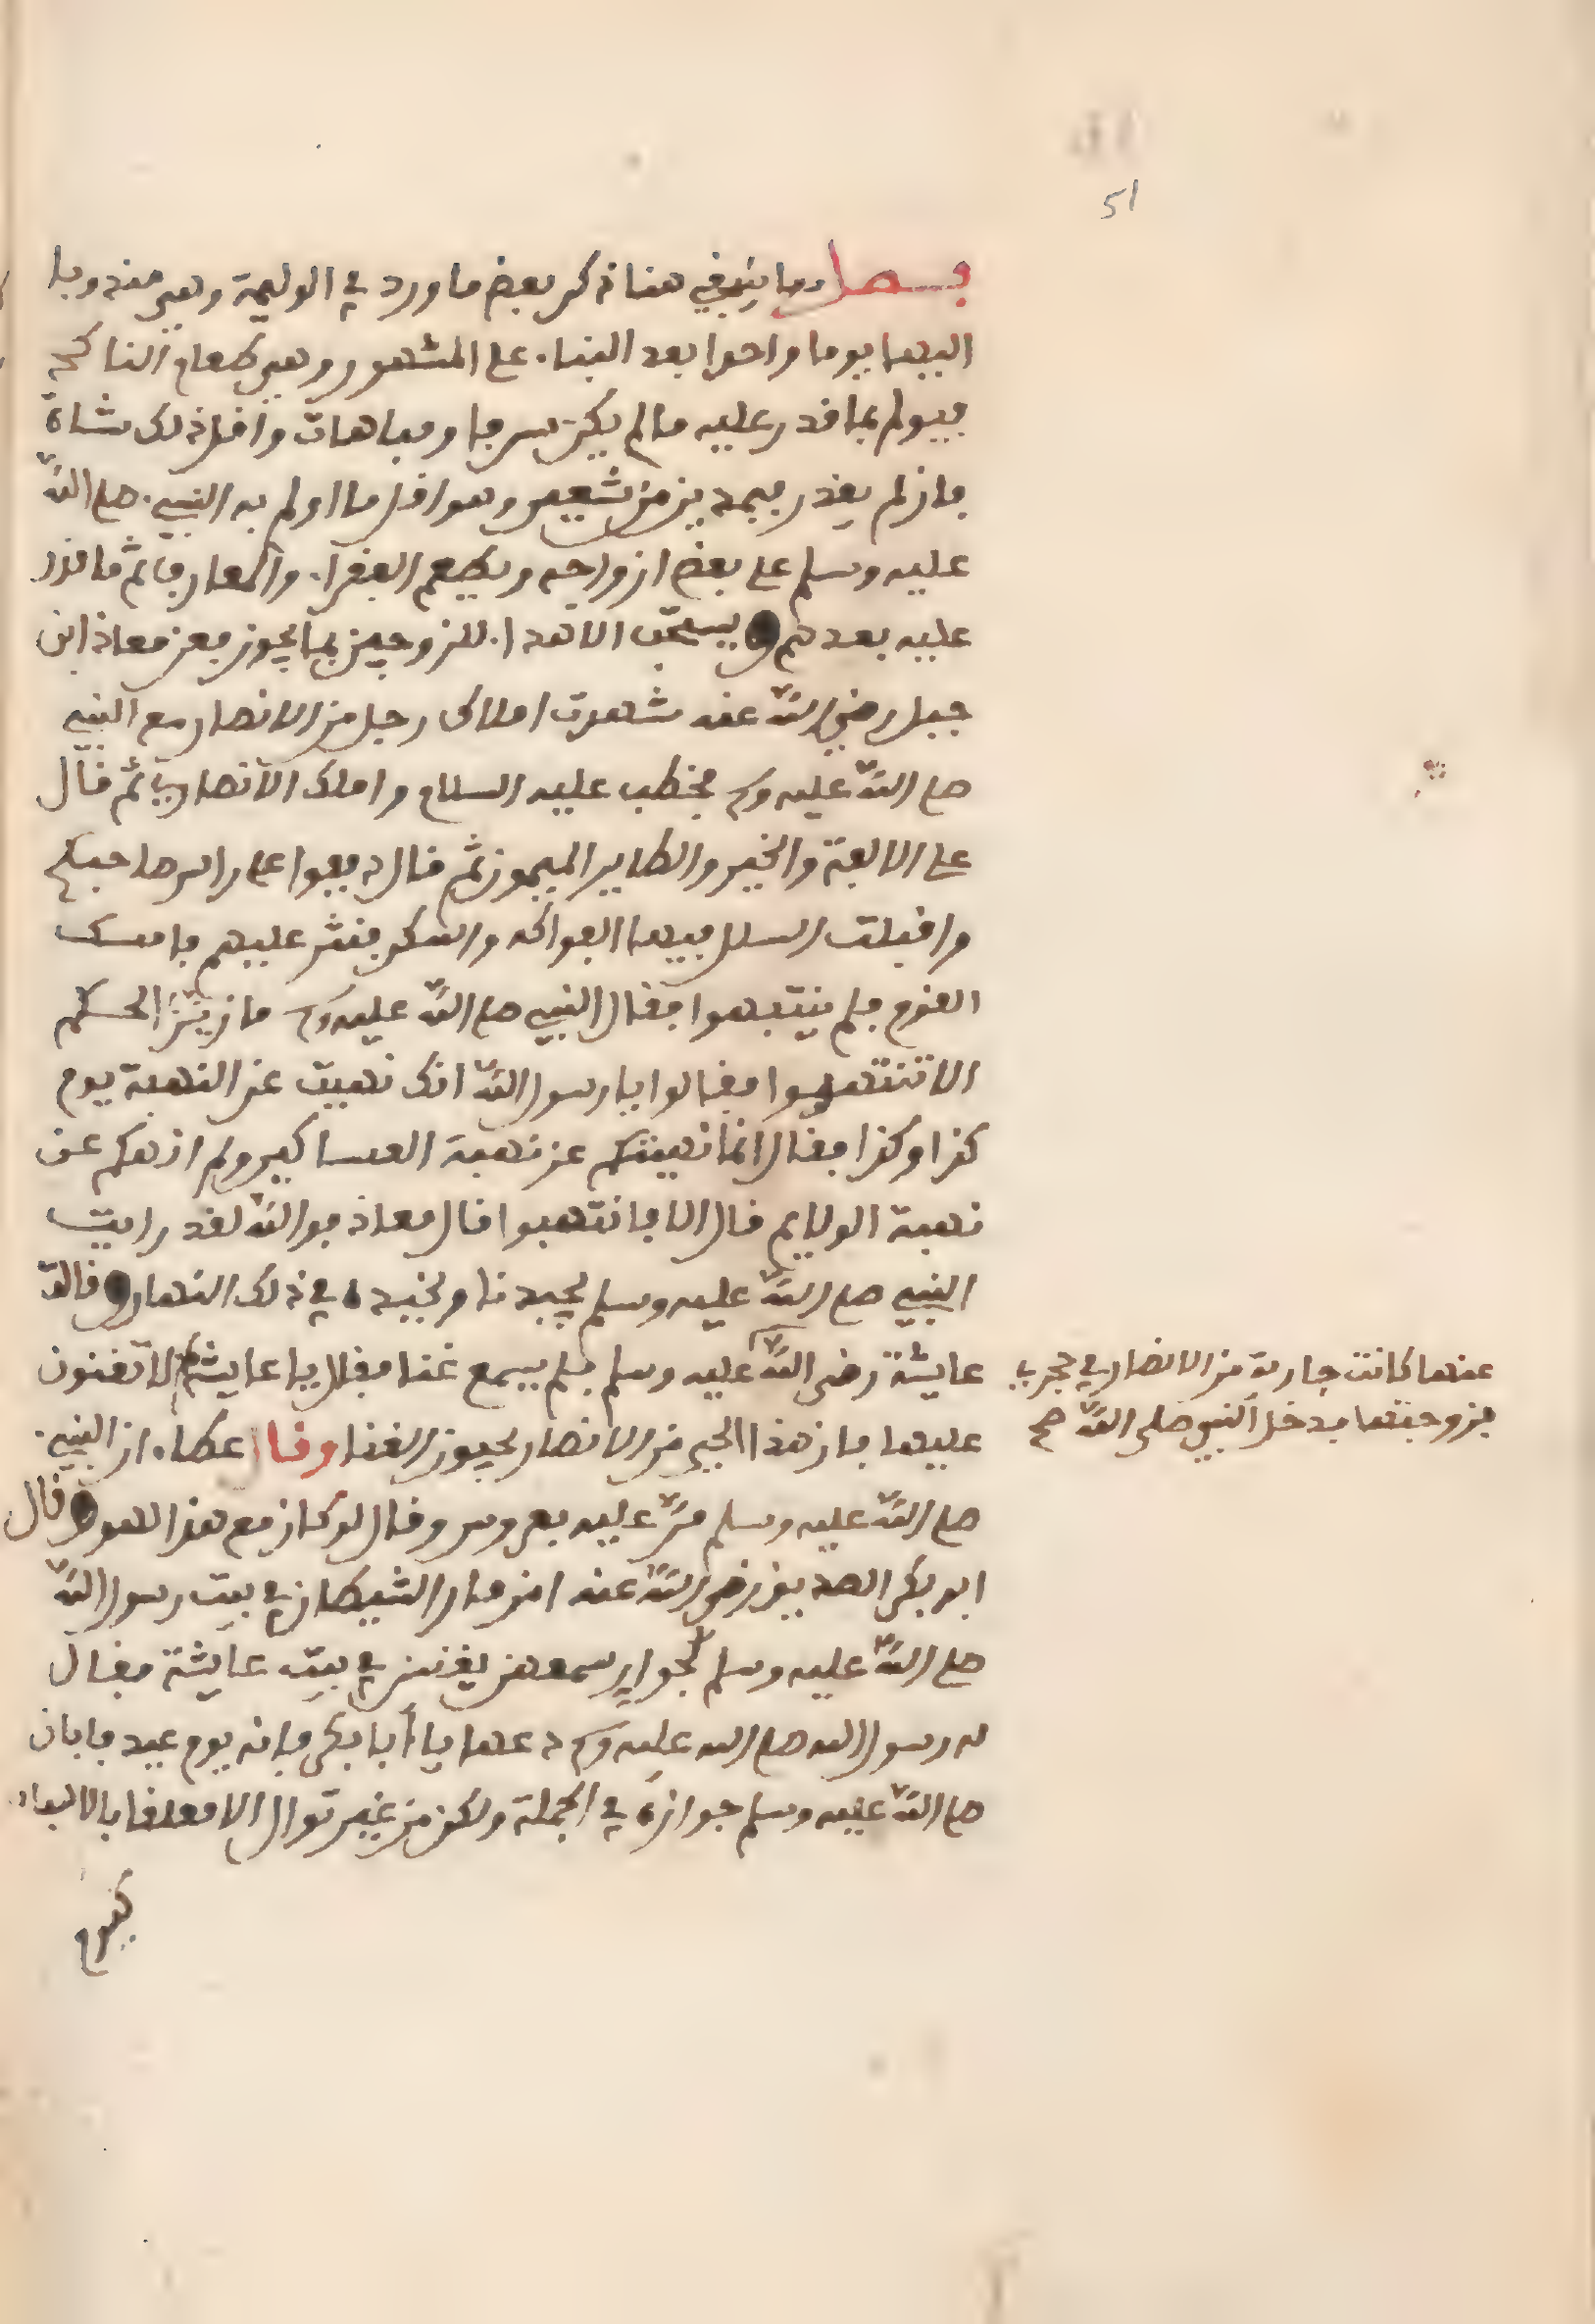 51
فصل ومما ينبغي هنا ذكر بعض ما ورد في الوليمة وهي مندوبا
اليها يوما واحدا بعد البناء على المشهور وهي طعام النا كح
فيولم بما قدر عليه ما لم يكن سرفا ومباهات واقل ذلك شاة
فان لم يقدر فبمدين من شعير وهو اقل ما اولم به النبي صلى الله
عليه وسلم على بعض ازواجه ويطعم الفقراء والمعارف ثم ما قدر
عليه بعدهم ويستحب الاهداء للزوجين بما يجوز فعن معاذ ابن
جبل رضي الله عنه شهدت املاك رجل من الانصار مع النبي
صلى الله عليه وسلم فخطب عليه السلام واملك الانصاري ثم قال
على الالفة والخير والطاير الميمون ثم قال دففوا على راس صاحبكم
واقبلت السلل فيها الفواكه والسكر فنثر عليهم فامسك
القوم فلم ينتبهوا فقال النبي صلى الله عليه وسلم ما ازين الحكم
الا تنتهبوا فقالوا يا رسول الله انك نهيت عن النهبة يوم
كذا وكذا فقال انما نهيتكم عن نهبة العساكير ولم انهكم عن
نهبة الولايم قال الا فانتهبوا قال معاذ فوالله لقد رايت
النبي صلى الله عليه وسلم يجبدنا ونجبده في ذلك النهار وقالت
عايشة رضى الله عليه وسلم فلم يسمع غنا فقال يا عايشة الا تغنون
عنها كانت جارية من الانصار في حجري
فزوجتها فدخل النبي صلى الله صح
عليها فان هذا الحي من الانصار يحبون الغنا وقال عطاء ان النبي
صلى الله عليه وسلم مر عليه بعروس وقال لو كان مع هذا لهو وقال
ابو بكر الصديق رضي الله عنه امزمار الشيطان في بيت رسول الله
صلى الله عليه وسلم لجوار سمعهن يغنين في بيت عايشة فقال
له رسول الله صلى الله عليه وسلم دعها يا أبا بكر فانه يوم عيد فابان
صلى الله عليه وسلم جوازه في الجملة ولكن من غير توال الا معلقا بالاتباع